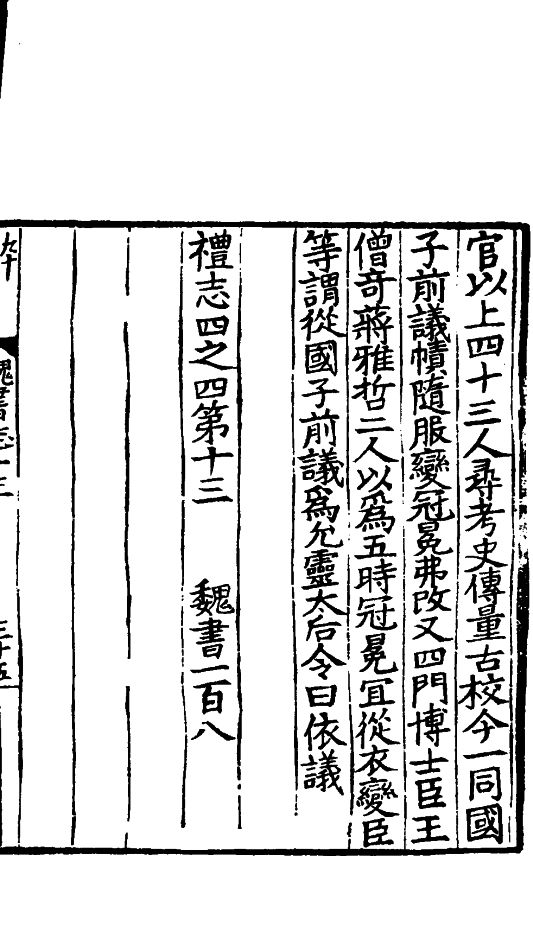 官以上四十三人尋考史傳量古校今一同國
子前議幘隨服變冠冕弗改又四門博士臣王
僧奇蔣雅哲二人以爲五時冠冕宜從衣變臣
等謂從國子前議爲允靈太后令曰依議
禮志四之四第十三　魏書一百八
魏書志十三
三十五